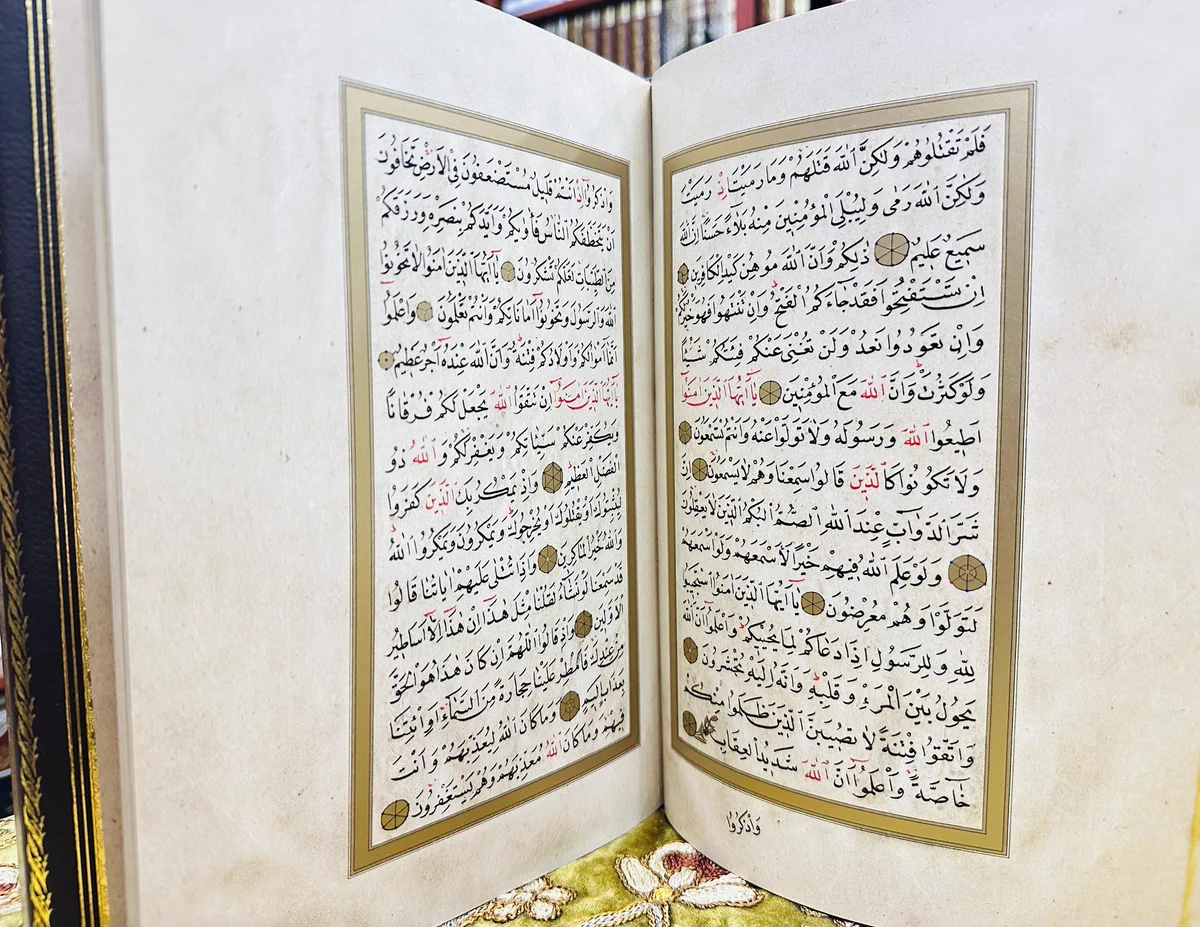 فَلَمْ تَقْتُلُوهُمْ وَلٰكِنَّ اللّٰهَ قَتَلَهُمْ وَمَا رَمَيْتَ اِذْ رَمَيْتَ
وَلٰكِنَّ اللّٰهَ رَمٰى وَلِيُبْلِىَ الْمُؤْمِنِينَ مِنْهُ بَلَاءً حَسَنًا اِنَّ اللّٰهَ
سَمِيعٌ عَلِيمٌ ذٰلِكُمْ وَاَنَّ اللّٰهَ مُوهِنُ كَيْدِ الْكَافِرِينَ
اِنْ تَسْتَفْتِحُوا فَقَدْ جَاءَكُمُ الْفَتْحُ وَاِنْ تَنْتَهُوا فَهُوَ خَيْرٌ لَكُمْ
وَاِنْ تَعُودُوا نَعُدْ وَلَنْ تُغْنِىَ عَنْكُمْ فِئَتُكُمْ شَيْئًا
وَلَوْ كَثُرَتْ وَاَنَّ اللّٰهَ مَعَ الْمُؤْمِنِينَ يَا اَيُّهَا الَّذِينَ اٰمَنُوا
اَطِيعُوا اللّٰهَ وَرَسُولَهُ وَلَا تَوَلَّوْا عَنْهُ وَاَنْتُمْ تَسْمَعُونَ
وَلَا تَكُونُوا كَالَّذِينَ قَالُوا سَمِعْنَا وَهُمْ لَا يَسْمَعُونَ اِنَّ
شَرَّ الدَّوَابِّ عِنْدَ اللّٰهِ الصُّمُّ الْبُكْمُ الَّذِينَ لَا يَعْقِلُونَ
وَلَوْ عَلِمَ اللّٰهُ فِيهِمْ خَيْرًا لَاَسْمَعَهُمْ وَلَوْ اَسْمَعَهُمْ
لَتَوَلَّوْا وَهُمْ مُعْرِضُونَ يَا اَيُّهَا الَّذِينَ اٰمَنُوا اسْتَجِيبُوا
لِلّٰهِ وَلِلرَّسُولِ اِذَا دَعَاكُمْ لِمَا يُحْيِيكُمْ وَاعْلَمُوا اَنَّ اللّٰهَ
يَحُولُ بَيْنَ الْمَرْءِ وَقَلْبِهِ وَاَنَّهُ اِلَيْهِ تُحْشَرُونَ
وَاتَّقُوا فِتْنَةً لَا تُصِيبَنَّ الَّذِينَ ظَلَمُوا مِنْكُمْ
خَاصَّةً وَاعْلَمُوا اَنَّ اللّٰهَ شَدِيدُ الْعِقَابِ
وَاذْكُرُوا
وَاذْكُرُوا اِذْ اَنْتُمْ قَلِيلٌ مُسْتَضْعَفُونَ فِى الْاَرْضِ تَخَافُونَ
اَنْ يَتَخَطَّفَكُمُ النَّاسُ فَاٰوٰيكُمْ وَاَيَّدَكُمْ بِنَصْرِهِ وَرَزَقَكُمْ
مِنَ الطَّيِّبَاتِ لَعَلَّكُمْ تَشْكُرُونَ يَا اَيُّهَا الَّذِينَ اٰمَنُوا لَا تَخُونُوا
اللّٰهَ وَالرَّسُولَ وَتَخُونُوا اَمَانَاتِكُمْ وَاَنْتُمْ تَعْلَمُونَ وَاعْلَمُوا
اَنَّمَا اَمْوَالُكُمْ وَاَوْلَادُكُمْ فِتْنَةٌ وَاَنَّ اللّٰهَ عِنْدَهُ اَجْرٌ عَظِيمٌ
يَا اَيُّهَا الَّذِينَ اٰمَنُوا اِنْ تَتَّقُوا اللّٰهَ يَجْعَلْ لَكُمْ فُرْقَانًا
وَيُكَفِّرْ عَنْكُمْ سَيِّئَاتِكُمْ وَيَغْفِرْ لَكُمْ وَاللّٰهُ ذُو
الْفَضْلِ الْعَظِيمِ وَاِذْ يَمْكُرُ بِكَ الَّذِينَ كَفَرُوا
لِيُثْبِتُوكَ اَوْ يَقْتُلُوكَ اَوْ يُخْرِجُوكَ وَيَمْكُرُونَ وَيَمْكُرُ اللّٰهُ
وَاللّٰهُ خَيْرُ الْمَاكِرِينَ وَاِذَا تُتْلٰى عَلَيْهِمْ اٰيَاتُنَا قَالُوا
قَدْ سَمِعْنَا لَوْ نَشَاءُ لَقُلْنَا مِثْلَ هٰذَا اِنْ هٰذَا اِلَّا اَسَاطِيرُ
الْاَوَّلِينَ وَاِذْ قَالُوا اللّٰهُمَّ اِنْ كَانَ هٰذَا هُوَ الْحَقَّ
مِنْ عِنْدِكَ فَاَمْطِرْ عَلَيْنَا حِجَارَةً مِنَ السَّمَاءِ اَوِ ائْتِنَا
بِعَذَابٍ اَلِيمٍ وَمَا كَانَ اللّٰهُ لِيُعَذِّبَهُمْ وَاَنْتَ
فِيهِمْ وَمَا كَانَ اللّٰهُ مُعَذِّبَهُمْ وَهُمْ يَسْتَغْفِرُونَ